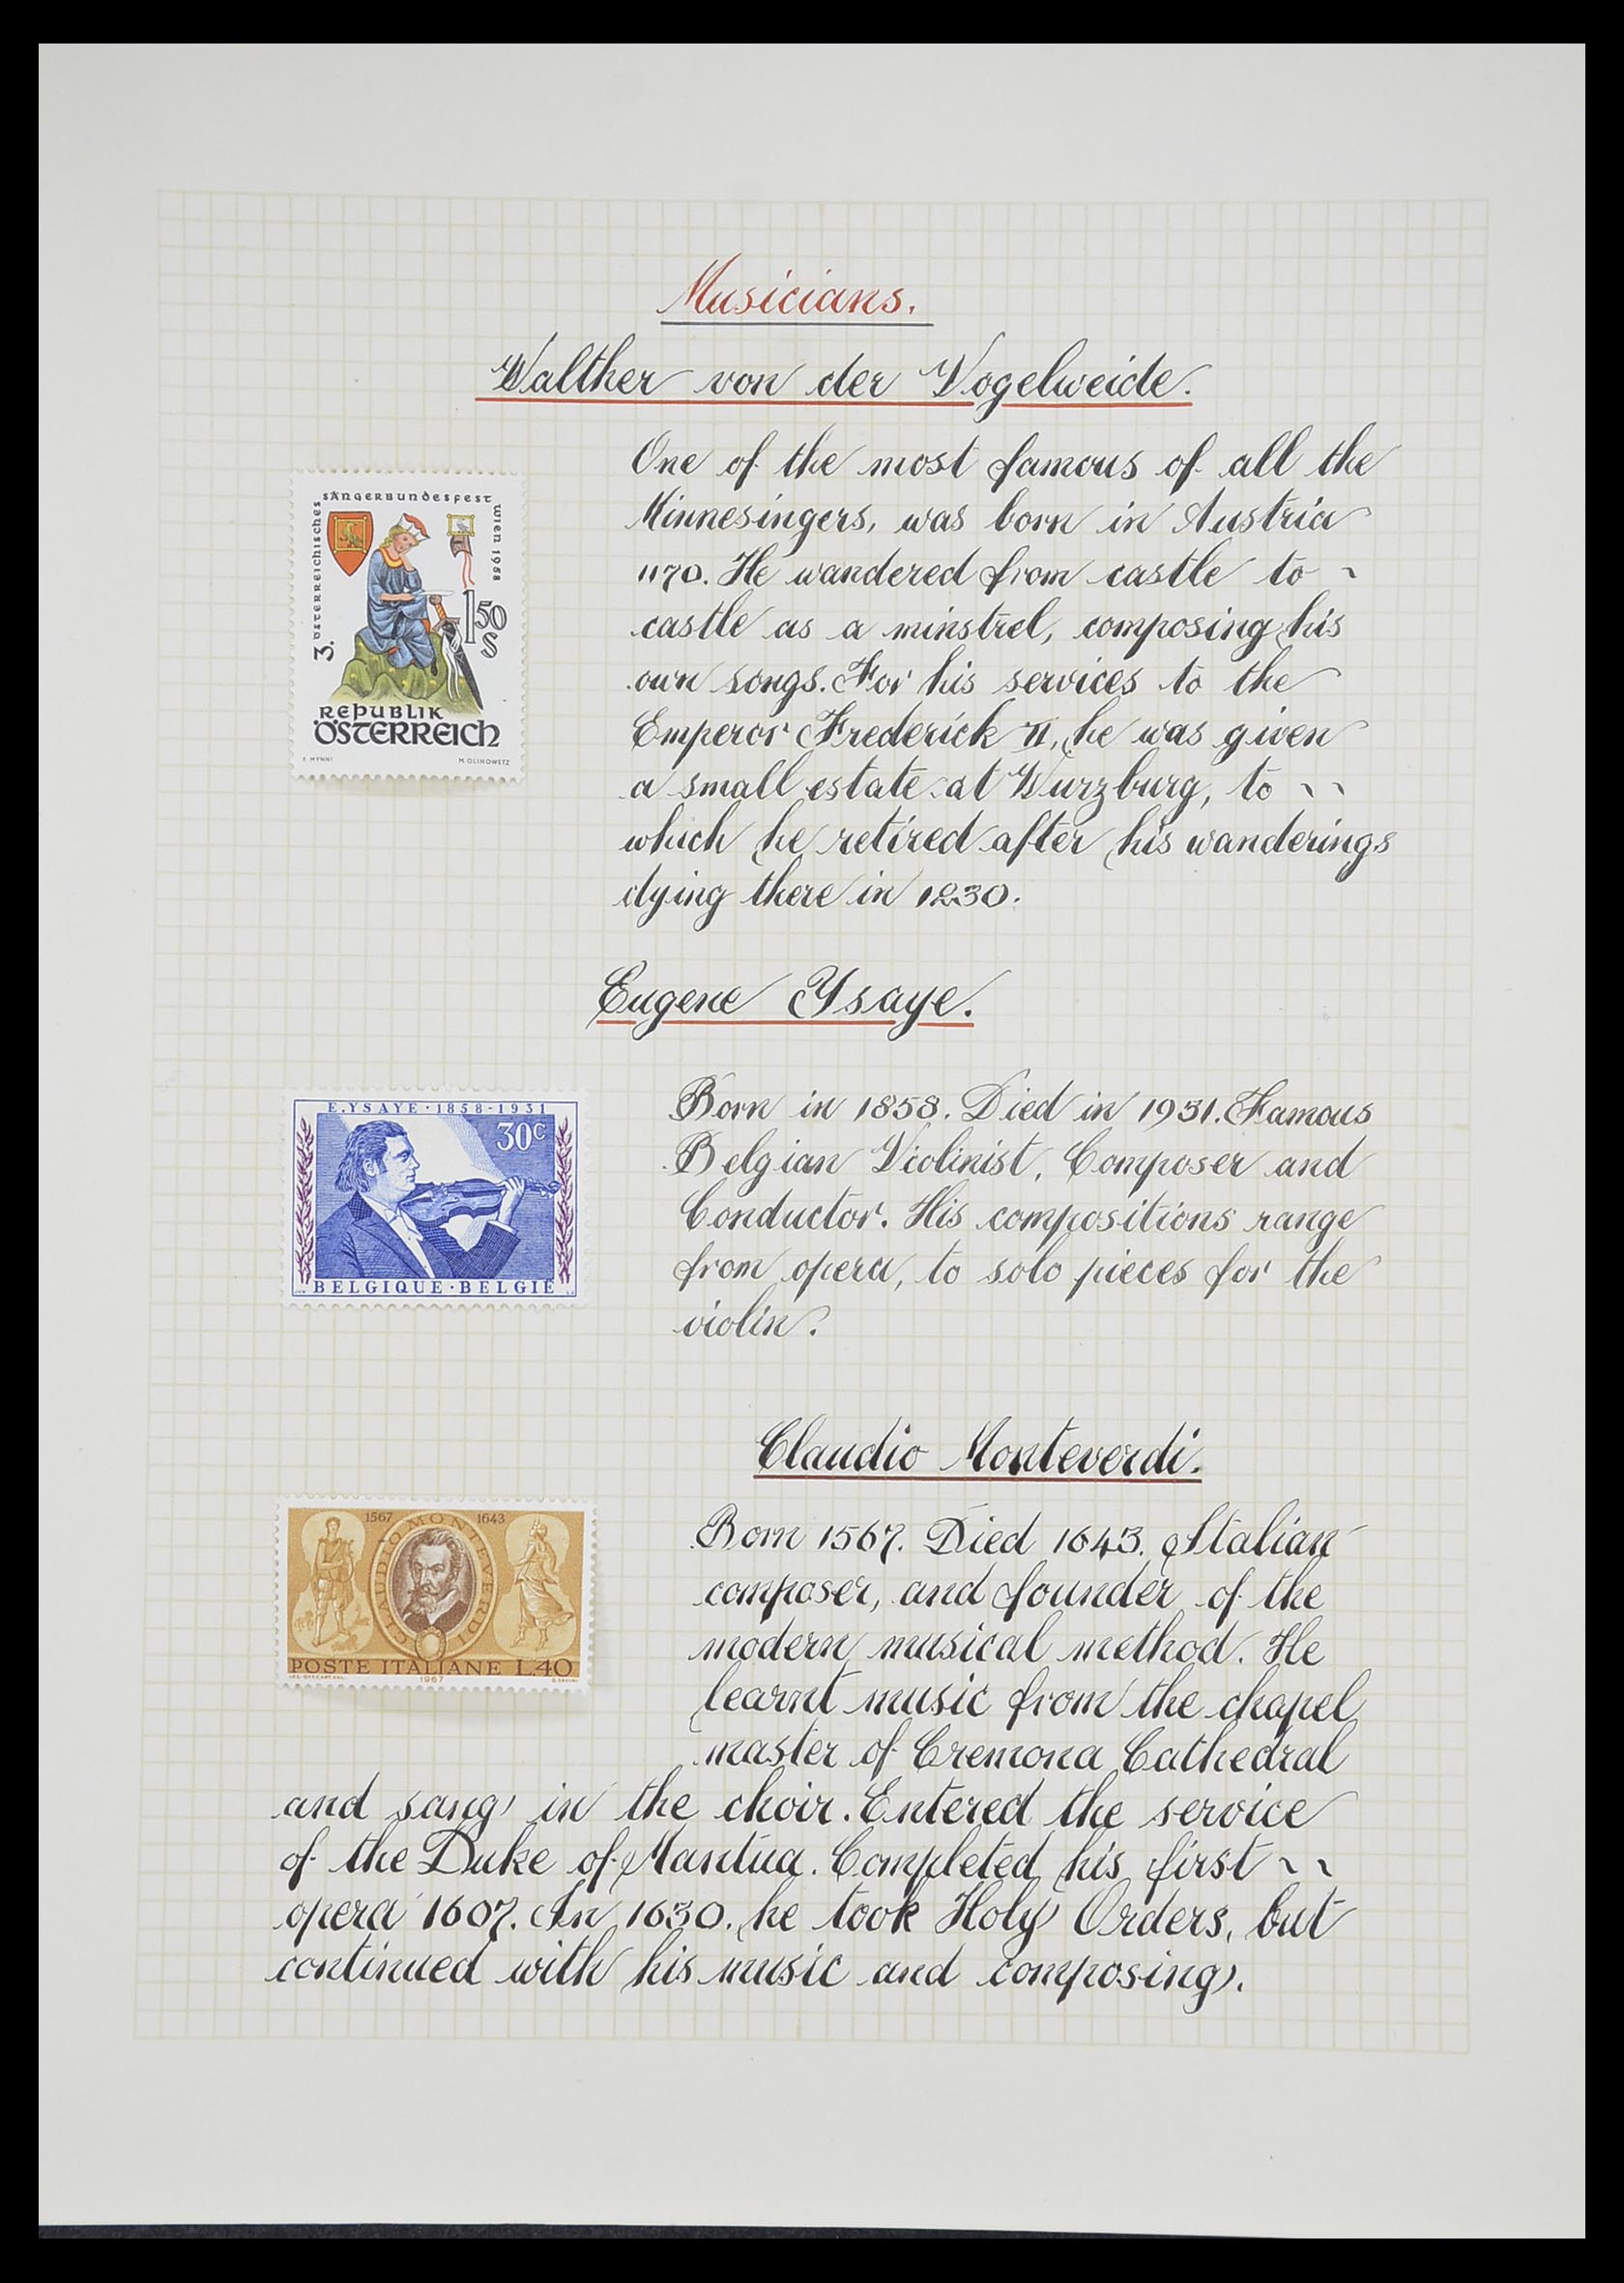 Musicians.
Walther von der Vogelweide.
SÄNGERBUNDESFEST
WIEN 1958
3. ÖSTERREICHISCHES
1.50
S
REPUBLIK
ÖSTERREICH
One of the most famous of all the
Minnesingers, was born in Austria
1170. He wandered from castle to ~
castle as a minstrel, composing his
own songs. For his services to the
Emperor Frederick II, he was given
a small estate at Wurzburg, to ~ ~
which he retired after his wanderings
dying there in 1230.
Eugene Ysaye.
E.YSAYE·1858-1931
30C
BELGIQUE·BELGIË
Born in 1858. Died in 1931. Famous
Belgian Violinist, Composer and
Conductor. His compositions range
from opera, to solo pieces for the
violin.
Claudio Monteverdi.
1567 1643
CLAUDIO MONTEVERDI
POSTE ITALIANE L.40
1967
Born 1567. Died 1643. Italian
composer, and founder of the
modern musical method. He
learnt music from the chapel
master of Cremona Cathedral
and sang in the choir. Entered the service
of the Duke of Mantua. Completed his first ~ ~
opera 1607. In 1630. he took Holy Orders, but
continued with his music and composing.